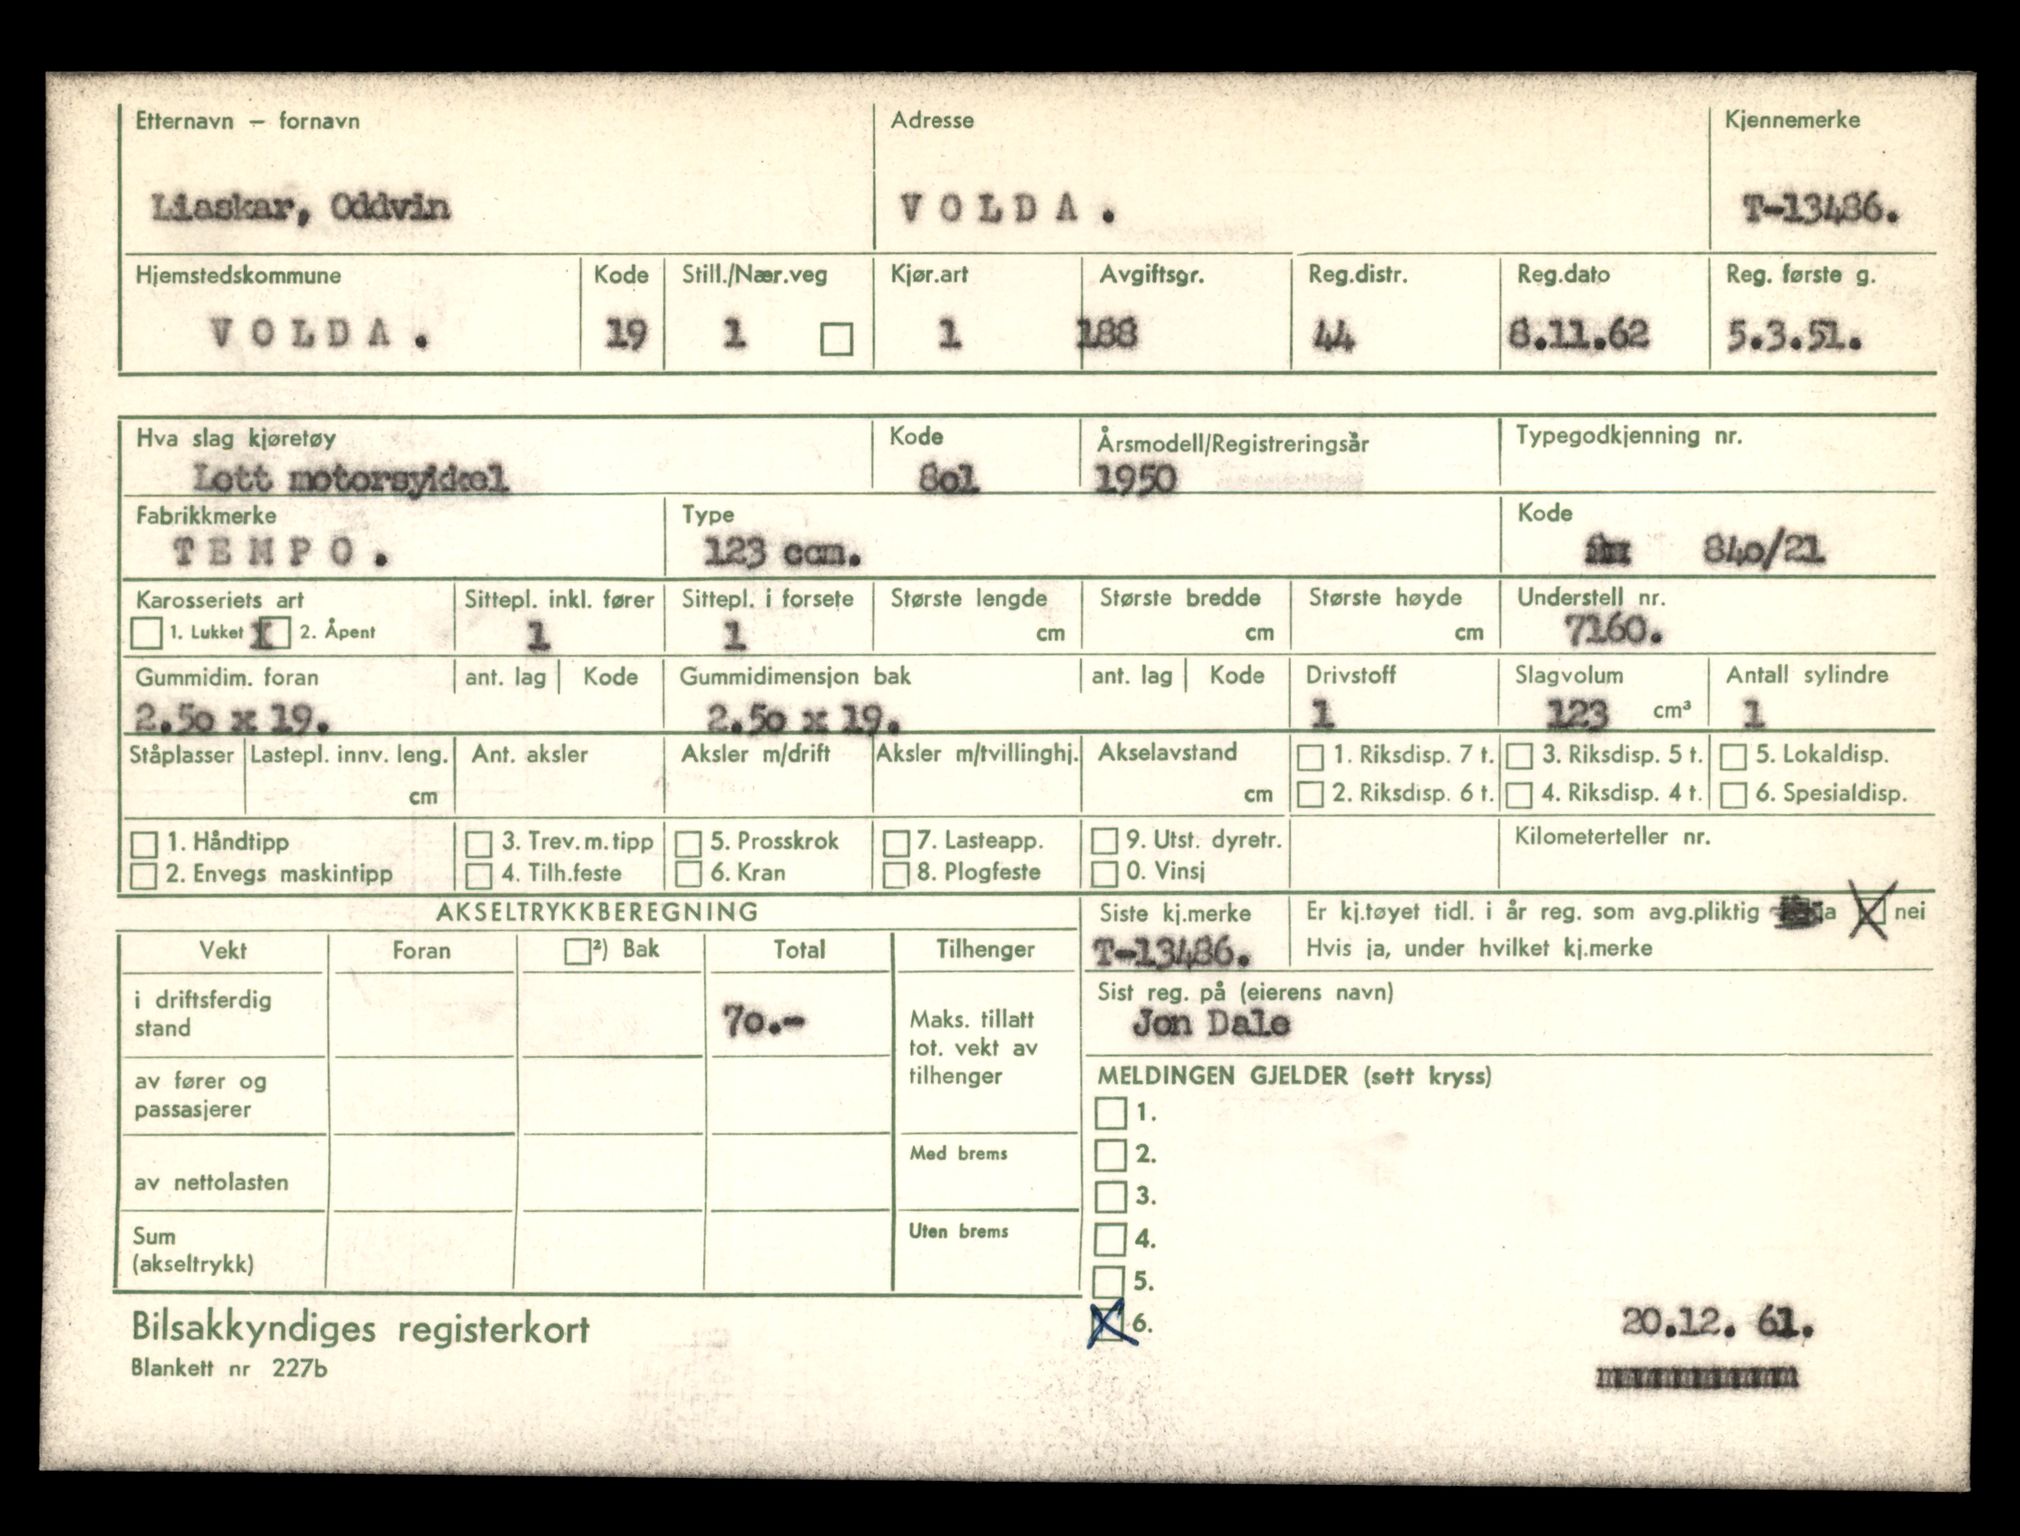 Etternavn – fornavn Adresse Kjennemerke
Liaskar, Oddvin V O L D A . T-13486.
Hjemstedskommune Kode Still./Nær.veg Kjør.art Avgiftsgr. Reg.distr. Reg.dato Reg. første g.
V O L D A . 19 1 1 188 44 8.11.62 5.3.51.
Hva slag kjøretøy Kode Årsmodell/Registreringsår Typegodkjenning nr.
Lett motorsykkel 8o1 1950
Fabrikkmerke Type Kode
T E M P O . 123 ccm. 84o/21
Karosseriets art Sittepl. inkl. fører Sittepl. i forsete Største lengde Største bredde Største høyde Understell nr.
1. Lukket X 2. Åpent 1 1 cm cm cm 7160.
Gummidim. foran ant. lag Kode Gummidimensjon bak ant. lag Kode Drivstoff Slagvolum Antall sylindre
2.5o x 19. 2.5o x 19. 1 123 cm³ 1
Ståplasser Lastepl. innv. leng. Ant. aksler Aksler m/drift Aksler m/tvillinghj. Akselavstand 1. Riksdisp. 7 t. 3. Riksdisp. 5 t. 5. Lokaldisp.
cm cm 2. Riksdisp. 6 t. 4. Riksdisp. 4 t. 6. Spesialdisp.
1. Håndtipp 3. Trev.m.tipp 5. Prosskrok 7. Lasteapp. 9. Utst. dyretr. Kilometerteller nr.
2. Envegs maskintipp 4. Tilh.feste 6. Kran 8. Plogfeste 0. Vinsj
AKSELTRYKKBEREGNING Siste kj.merke Er kj.tøyet tidl. i år reg. som avg.pliktig ja X nei
Vekt Foran ²) Bak Total Tilhenger T-13486. Hvis ja, under hvilket kj.merke
i driftsferdig stand 7o.- Maks. tillatt tot. vekt av tilhenger
Sist reg. på (eierens navn)
Jon Dale
av fører og passasjerer
MELDINGEN GJELDER (sett kryss)
1.
av nettolasten Med brems
2.
3.
Sum (akseltrykk) Uten brems
4.
5.
X 6. 20.12. 61.
Bilsakkyndiges registerkort
Blankett nr 227b